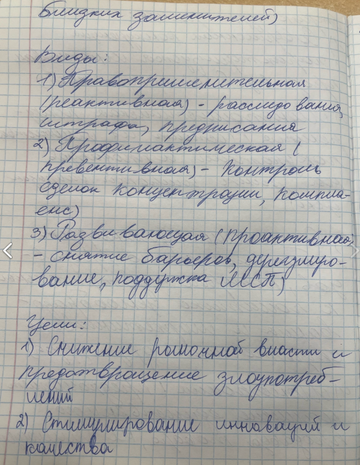 близких заменителей)
Виды:
1) Правоприменительная
(реактивная) - расследования,
штрафы, предписания
2) Профилактическая (
превентивная) - контроль
сделок концентрации, компла-
енс)
3) Развивающая (проактивная)
- снятие барьеров, дерегулиро-
вание, поддержка МСП)
Цели:
1) Снижение рыночной власти и
предотвращение злоупотреб-
лений
2) Стимулирование инноваций и
качества